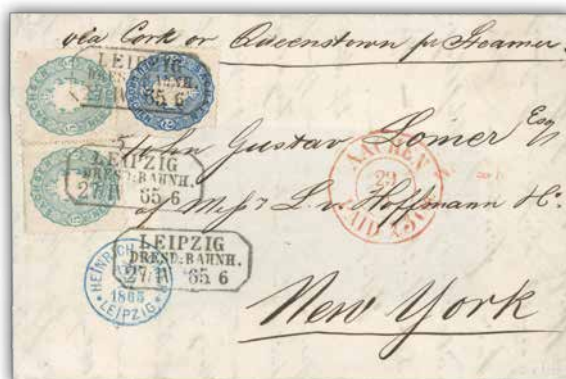 via Cork or Queenstown pr Steamer
LEIPZIG
DRESD: BAHNH.
27 IV 65 6
SACHSEN
John Gustav Lomer Esq
AACHEN
29
PAID
LEIPZIG
DRESD: BAHNH.
27 IV 65 6
of Messrs L. v Hoffmann &
LEIPZIG
DRESD: BAHNH.
27 IV 65 6
HEINRICH
1865
LEIPZIG
New York